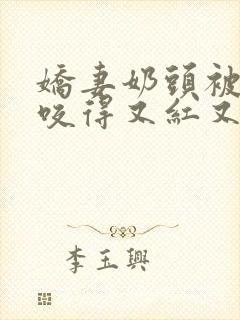 嬌妻奶頭被
咬得又紅又
李玉興